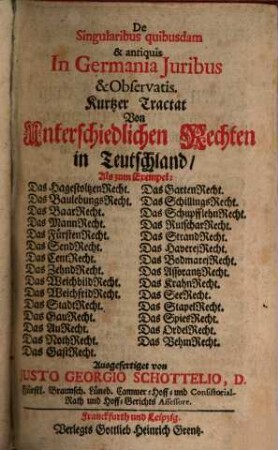 De
Singularibus quibusdam
& antiquis
In Germania Juribus
& Observatis.
Kurtzer Tractat
Von
Unterschiedlichen Rechten
in Teutschland/
Als zum Exempel:
Das HagestoltzenRecht.
Das BaulebungsRecht.
Das BaarRecht.
Das MannRecht.
Das FürstenRecht.
Das SendRecht.
Das CentRecht.
Das ZehndRecht.
Das WeichbildRecht.
Das WeichfridRecht.
Das StadtRecht.
Das GauRecht.
Das AuRecht.
Das NothRecht.
Das GastRecht.
Das GartenRecht.
Das SchillingsRecht.
Das SchupfflehnRecht.
Das RutscharRecht.
Das StrandRecht.
Das HaverejRecht.
Das BodmarejRecht.
Das AssorantzRecht.
Das KrahnRecht.
Das SeeRecht.
Das StapelRecht.
Das SpiesRecht.
Das OrdelRecht.
Das VehmRecht.
Ausgefertiget von
JUSTO GEORGIO SCHOTTELIO, D.
Fürstl. Braunsch. Lüneb. Cammer-Hoff- und Consistorial-
Rath und Hoff-Gerichts Assessore.
Franckfurth und Leipzig.
Verlegts Gottlieb Heinrich Grentz.